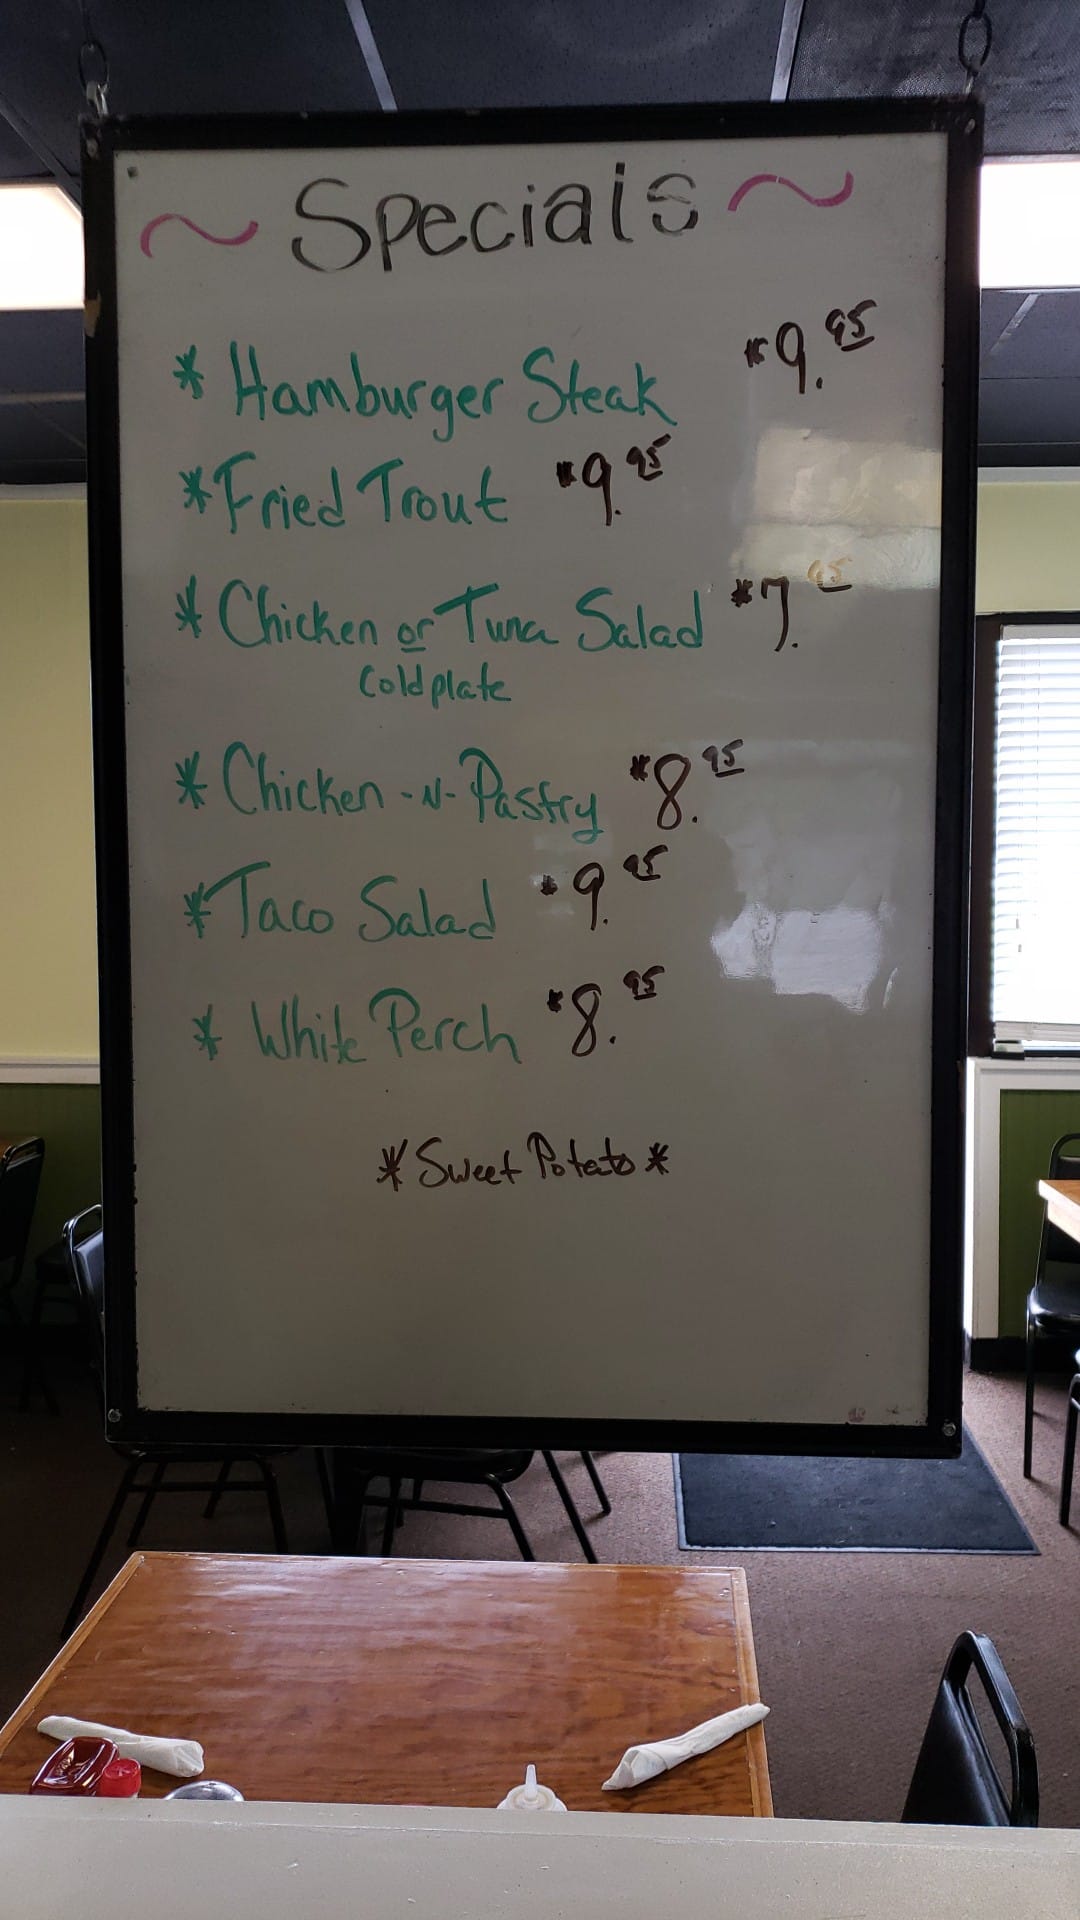 ~ Specials ~
* Hamburger Steak $9.95
* Fried Trout $9.95
* Chicken or Tuna Salad $7.95
Cold plate
* Chicken -N- Pastry $8.95
* Taco Salad $9.95
* White Perch $8.95
* Sweet Potato *